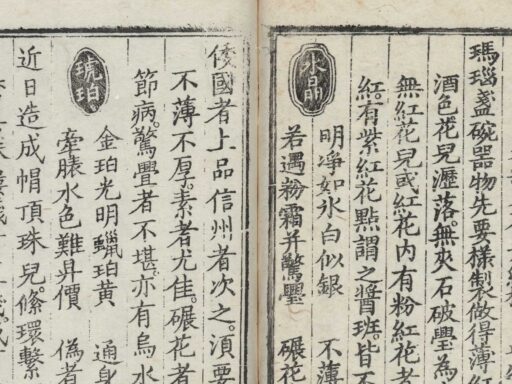 瑪瑙盞碗器物先要樣製好做得薄
酒色花兒瀝落。無夾石破璺為
無紅花兒或紅花內有粉紅花者
紅。有紫紅花點謂之醬斑。皆不
水晶
明淨如冰白似銀 不薄
若遇粉霜并驚璺 碾花
倭國者上品信州者次之。須要
不薄不厚。素者尤佳。碾花者
節病。驚璺者不堪。亦有烏水
琥珀
金珀光明蠟珀黃 通身
牽脿水色難昇價 偽者
近日造成帽頂珠兒。絛環繫